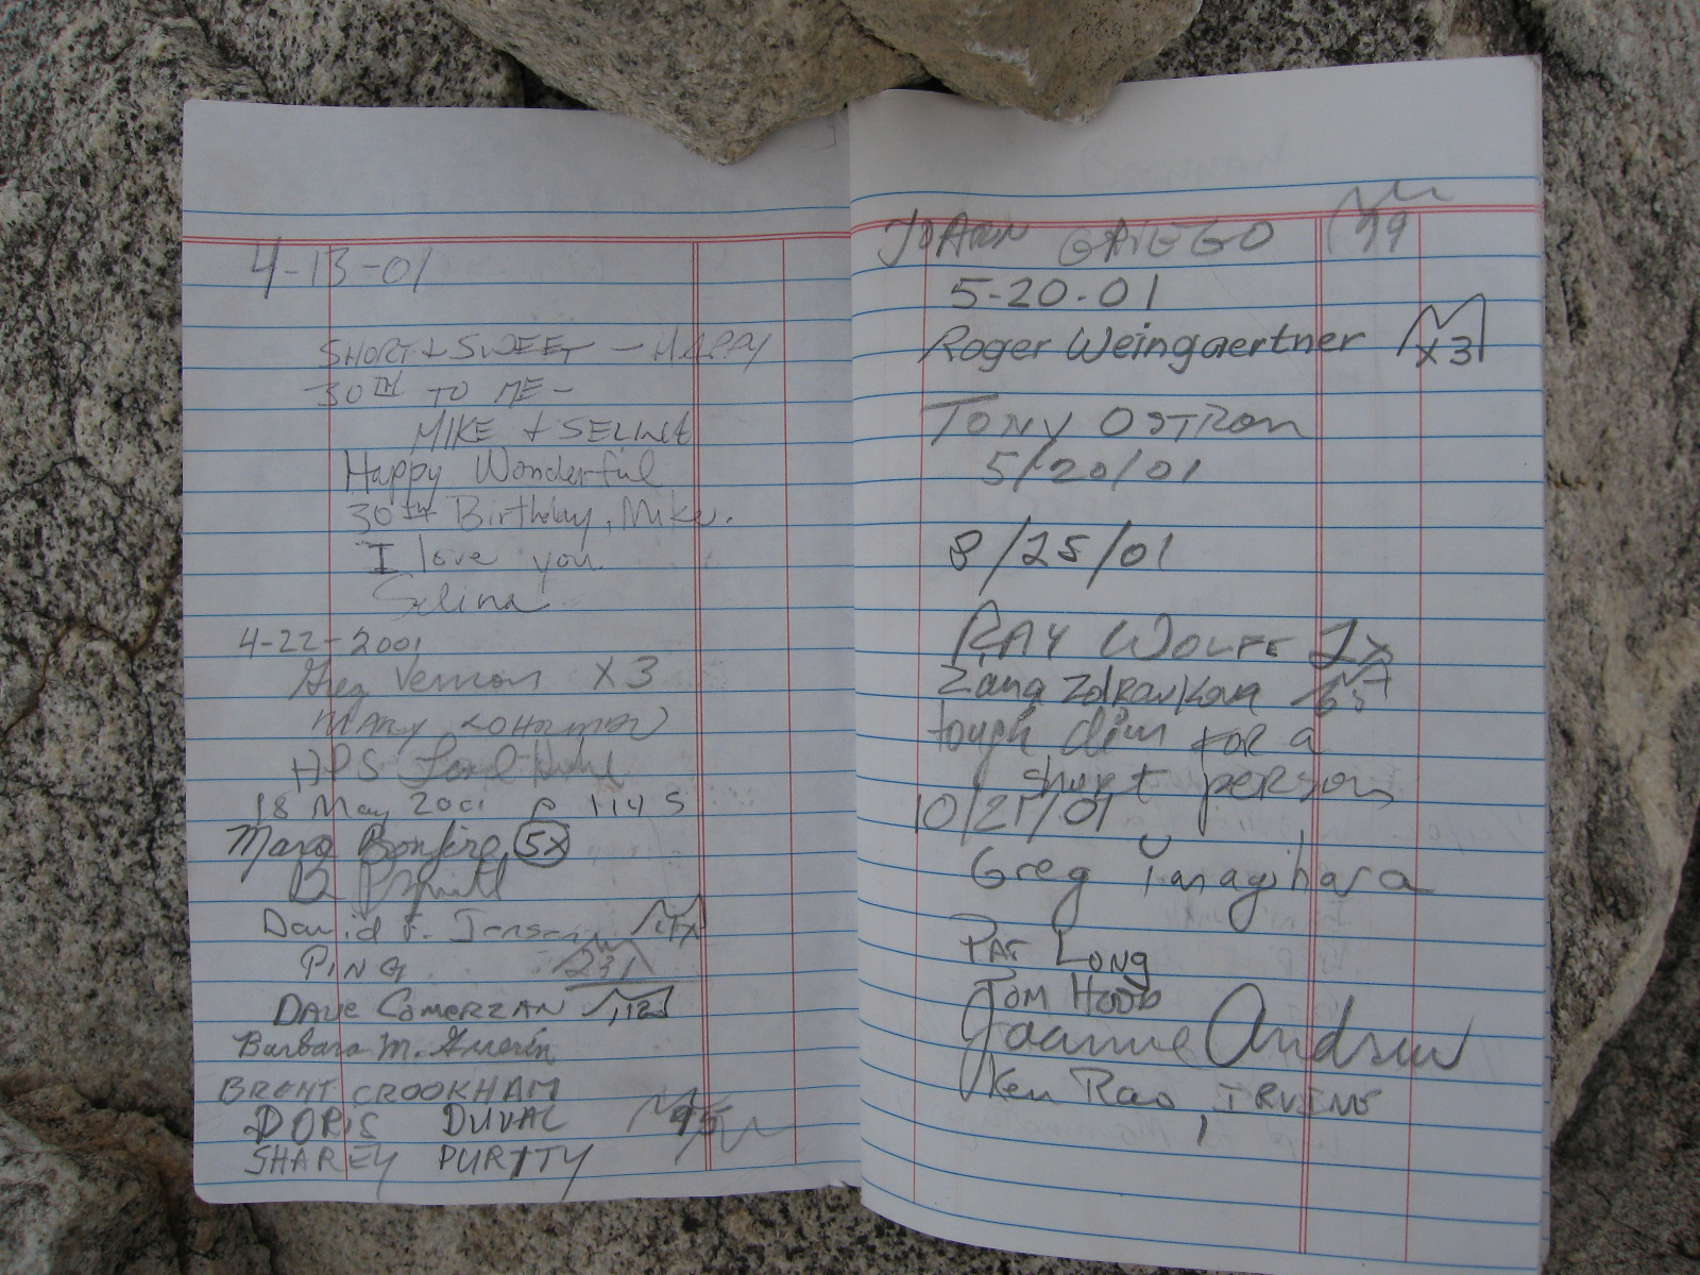 4-13-01
SHORT & SWEET - HAPPY
30TH TO ME -
MIKE + SELINE
Happy Wonderful
30th Birthday, Mike.
I love you.
Selina
4-22-2001
Greg Vernon X3
MARY
HPS
18 May 2001 @ 1145
Mara Bonfire 5X
B
David F. Jensen
PING 231
DAVE COMERZAN 112
Barbara M. Guerin
BRENT CROOKHAM
DORIS DUVAL 95
SHAREY PURITY
JOANN GRIEGO 99
5-20-01
Roger Weingaertner X3
TONY OSTROM
5/20/01
8/25/01
RAY WOLFE 2x
Zana Zdravkova
tough climb FOR a
short person
10/21/01
Greg Yanagihara
PAT LONG
TOM HOOD
Joanne Andrew
Ken Rao, IRVINE